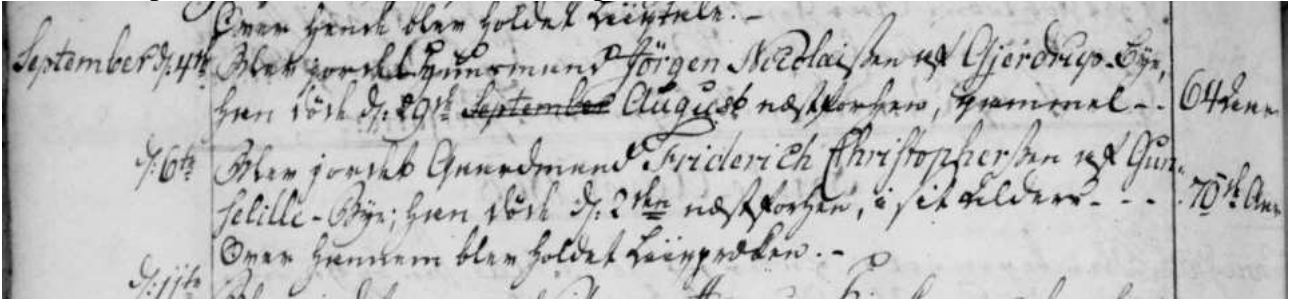 Over hende blev holdet Liigtale. -
September d: 4de Blev jordet Huusmand Jörgen Nicolaißen af Gjerdrup-Bye,
han döde d: 29de September August næstforhen, gammel - - 64 Aar
d: 6te Blev jordet Gaardmand Friderich Christophersen af Gun-
selille-Bye; han döde d: 2den næstforhen, i sit Alders - - - 70de Aar
Over hannem blev holdet Liigprædken. -
d: 11te